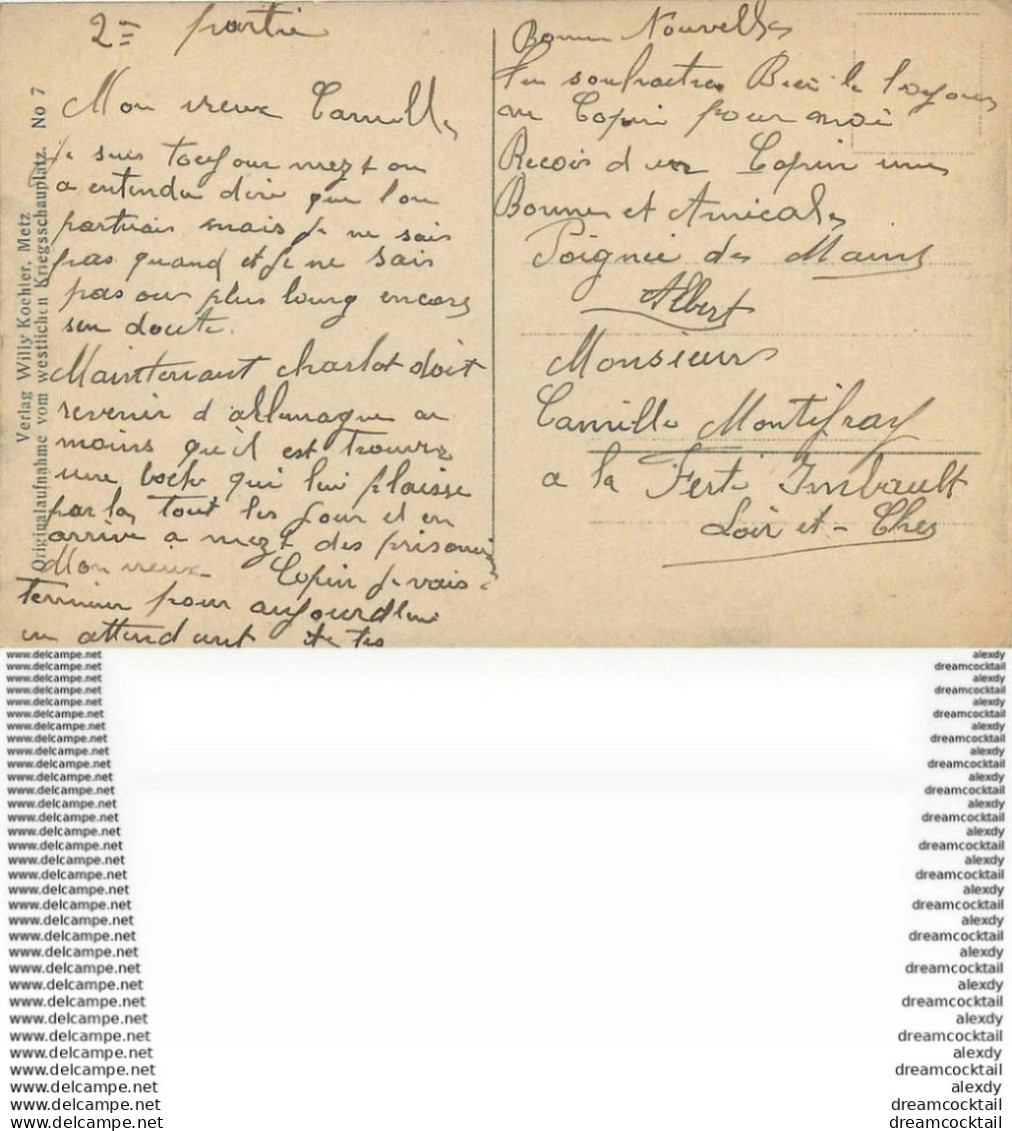 2e partie
Mon vieux Camille
Je suis toujour mezt on
a entendu dire que l'on
partirais mais je ne sais
pas quand et je ne sais
pas ou plus loing encore
sen doute.
Maintenant charlot doit
revenir d'allemagne au
moins qu'il est trouvé
une boche qui lui plaisse
par la tout les jour et en
arrive a mezt des prisonié
Mon vieux Copin je vais
terminer pour aujourdhui
en attendant de tes
Bonnes Nouvelles
Tu souhaitra Bien le
au Copin pour moi
Recois d'un Copin une
Bonnes et Amicales
Poignée des Mains
Albert
Monsieur
Camille Montifray
a la Ferté Imbault
Loir et - Cher
Verlag Willy Koehler, Metz
Originalaufnahme vom westlichen Kriegsschauplatz. No 7
www.delcampe.net
alexdy
www.delcampe.net
dreamcocktail
www.delcampe.net
alexdy
www.delcampe.net
dreamcocktail
www.delcampe.net
alexdy
www.delcampe.net
dreamcocktail
www.delcampe.net
alexdy
www.delcampe.net
dreamcocktail
www.delcampe.net
alexdy
www.delcampe.net
dreamcocktail
www.delcampe.net
alexdy
www.delcampe.net
dreamcocktail
www.delcampe.net
alexdy
www.delcampe.net
dreamcocktail
www.delcampe.net
alexdy
www.delcampe.net
dreamcocktail
www.delcampe.net
alexdy
www.delcampe.net
dreamcocktail
www.delcampe.net
alexdy
www.delcampe.net
dreamcocktail
www.delcampe.net
alexdy
www.delcampe.net
dreamcocktail
www.delcampe.net
alexdy
www.delcampe.net
dreamcocktail
www.delcampe.net
alexdy
www.delcampe.net
dreamcocktail
www.delcampe.net
alexdy
www.delcampe.net
dreamcocktail
www.delcampe.net
alexdy
www.delcampe.net
dreamcocktail
www.delcampe.net
alexdy
www.delcampe.net
dreamcocktail
www.delcampe.net
alexdy